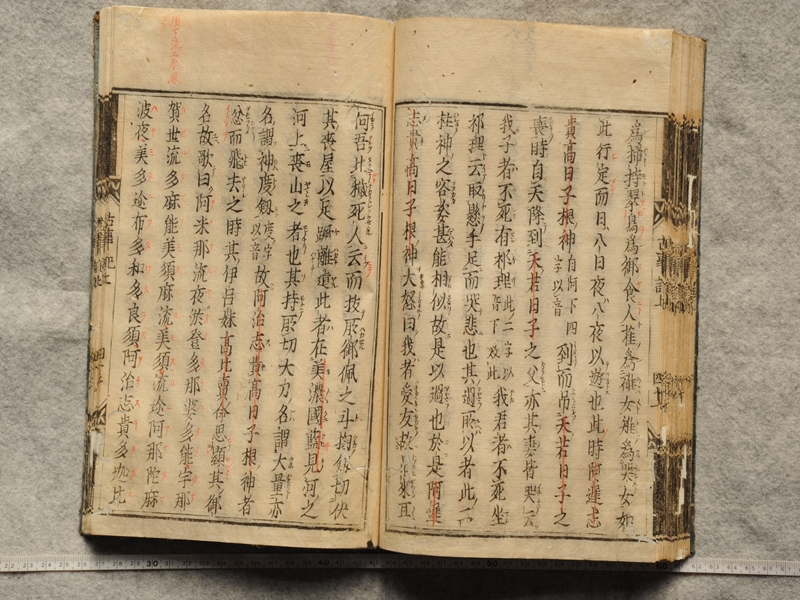 為掃持翠鳥為御食人雀為碓女雉為哭女如
此行定而日八日夜八夜以遊也此時阿遅志
貴高日子根神 自阿下四字以音 到而弔天若日子之
喪時自天降到天若日子之父亦其妻皆哭云
我子者不死有祁理 此二字以音下效此 我君者不死坐
祁理云取懸手足而哭悲也其過所以者此二
柱神之容姿甚能相似故是以過也於是阿遅
志貴高日子根神大怒曰我者愛友故弔来耳
何吾比穢死人云而抜所御佩之十掬剱切伏
其喪屋以足蹶離遣此者在美濃國藍見河之
河上喪山之者也其持所切大刀名謂大量亦
名謂神度剱 度字以音 故阿治志貴高日子根神者
忿而飛去之時其伊呂妹高比賣命思顕其御
名故歌曰阿米那流夜淤登多那婆多能宇那
賀世流多麻能美須麻流美須流迩阿那陀麻
波夜美多迩布多和多良須阿治志貴多迦比
古事記上